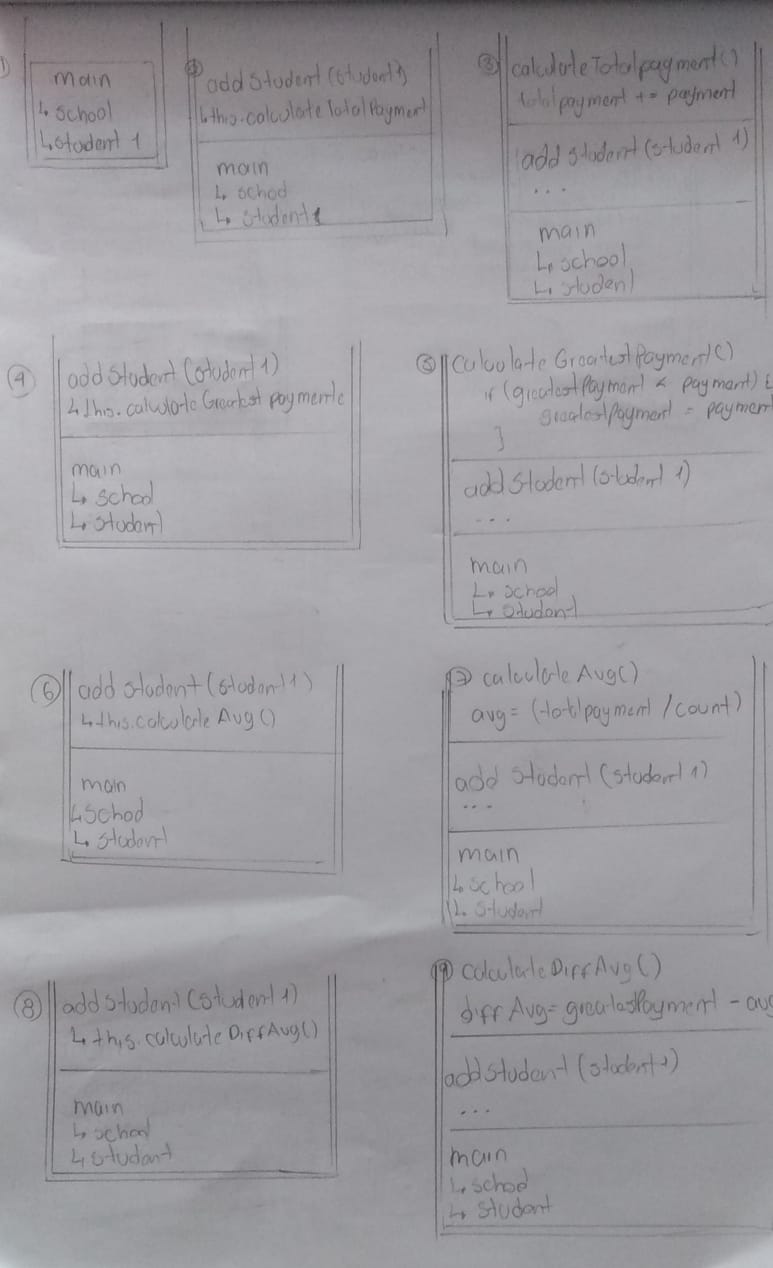 1)
main
↳ school
↳ student 1
② add Student (student 1)
↳ this.calculateTotalPayment
main
↳ school
↳ student 1
③ calculateTotalpayment()
totalpayment += payment
add student (student 1)
...
main
↳ school
↳ student
④ add Student (student 1)
↳ this.calculate Greatest payment(
main
↳ school
↳ student
⑤ calculate GreatestPayment()
if (greatestPayment < payment) {
greatestPayment = payment
}
add student (student 1)
...
main
↳ school
↳ student
⑥ add student (student 1)
↳ this.calculate Avg ()
main
↳ school
↳ student
⑦ calculate Avg()
avg = (totalpayment / count)
add student (student 1)
...
main
↳ school
↳ student
⑧ add student (student 1)
↳ this.calculate DiffAvg()
main
↳ school
↳ student
⑨ calculate DiffAvg()
diff Avg = greatestPayment - avg
add student (student 1)
...
main
↳ school
↳ student